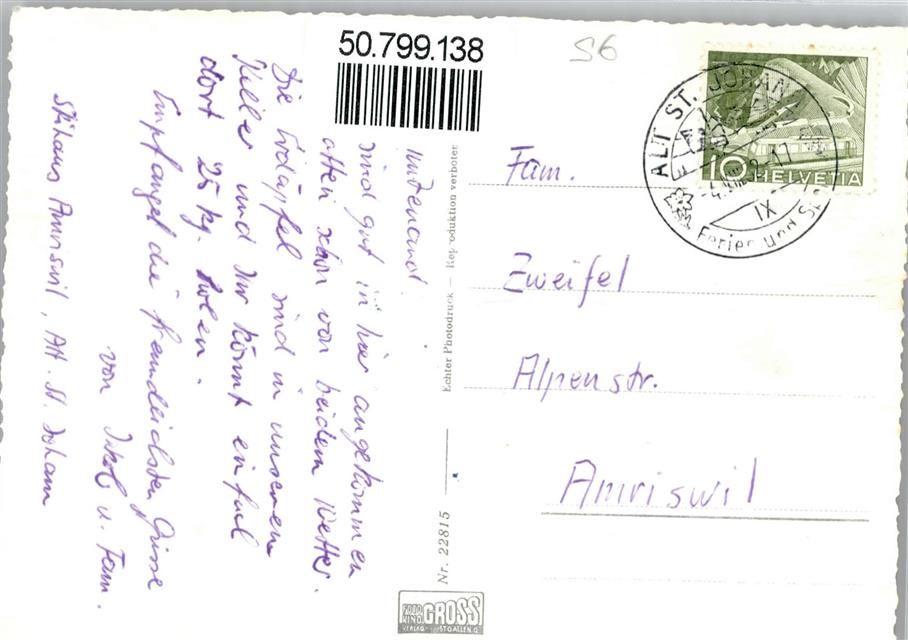 50.799.138
S6
ALT ST. JOHANN
10
HELVETIA
IX
Ferien und
Fam.
Zweifel
Alpenstr.
Amriswil
sind gut in hier angekommen
schon von beidem Wetter.
Die Erdäpfel sind in unserem
Keller und Ihr könnt einfach
dort 25 kg. holen.
Empfanget die freundlichsten Grüsse
von Jakob u. Fam.
Skihaus Amriswil, Alt. St. Johann
Echter Photodruck — Reproduktion verboten
Nr. 22815
FOTO
KINO
GROSS
VERLAG ST.GALLEN